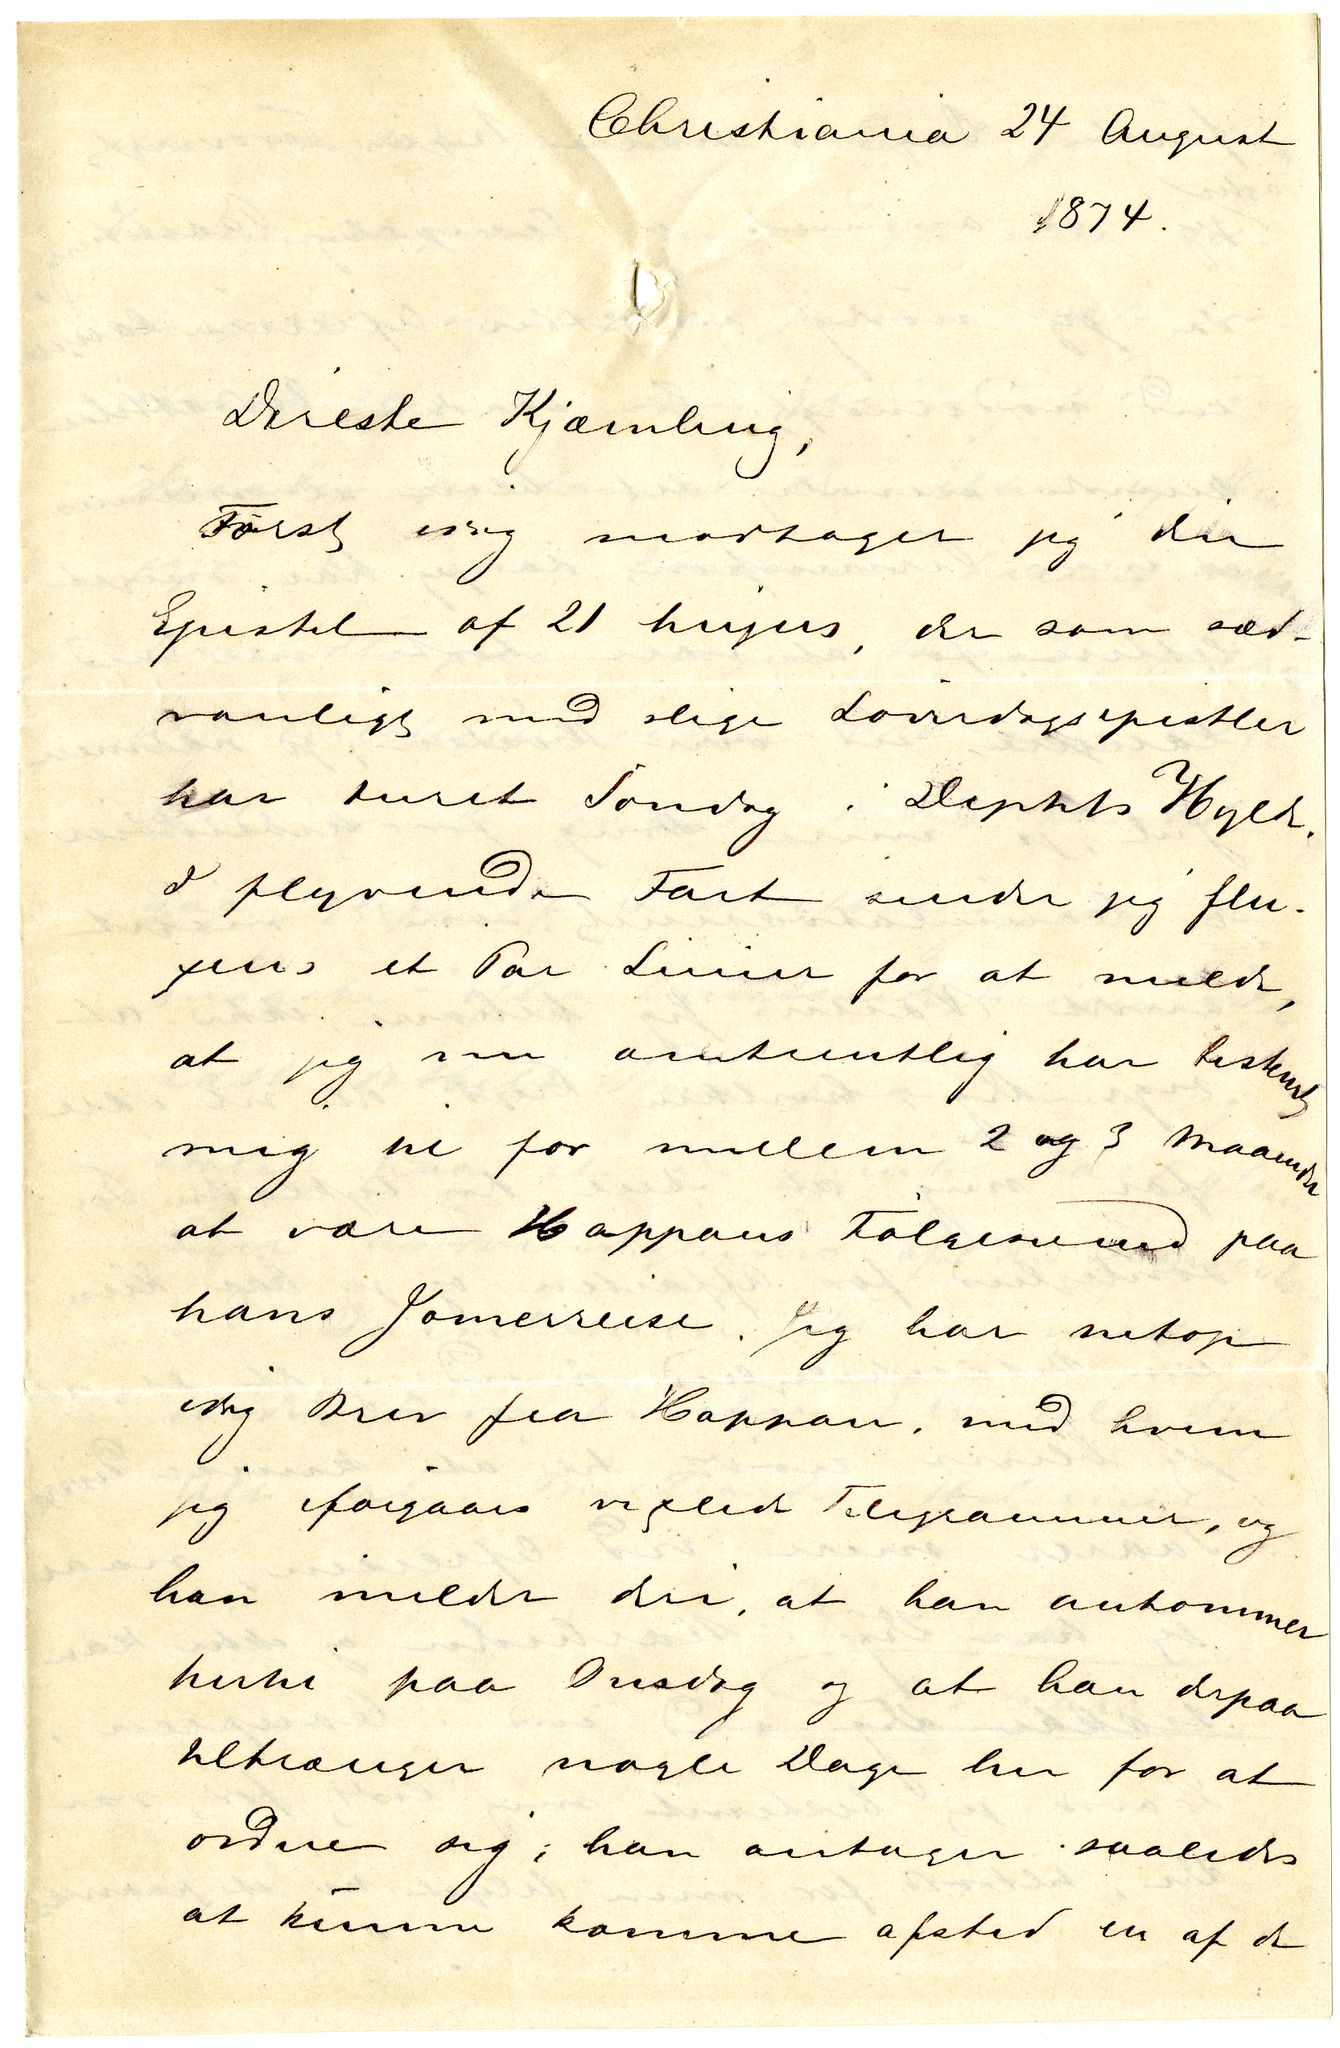 Christiania 24 August
1874.
Direste Kjæmling,
Först idag modtager jeg din
Epistel af 21 hujus, der som sæd-
vanligt med slige Löverdagsepistler
har turet Söndag i Deptets Hylde.
I flyvende Fart sender jeg flu-
xens et Par Linier for at melde,
at jeg nu omtrentlig har bestemt
mig til for mellem 2 og 3 Maaneder
at være Happans Fölgesvend paa
hans Jomerreise. Jeg har netop
idag Brev fra Happan, med hvem
jeg iforgaars vexlede Telegrammer, og
han melder deri, at han ankommer
hertil paa Onsdag og at han derpaa
tiltrænger nogle Dage her for at
ordne sig; han antager saaledes
at kunne komme afsted en af de